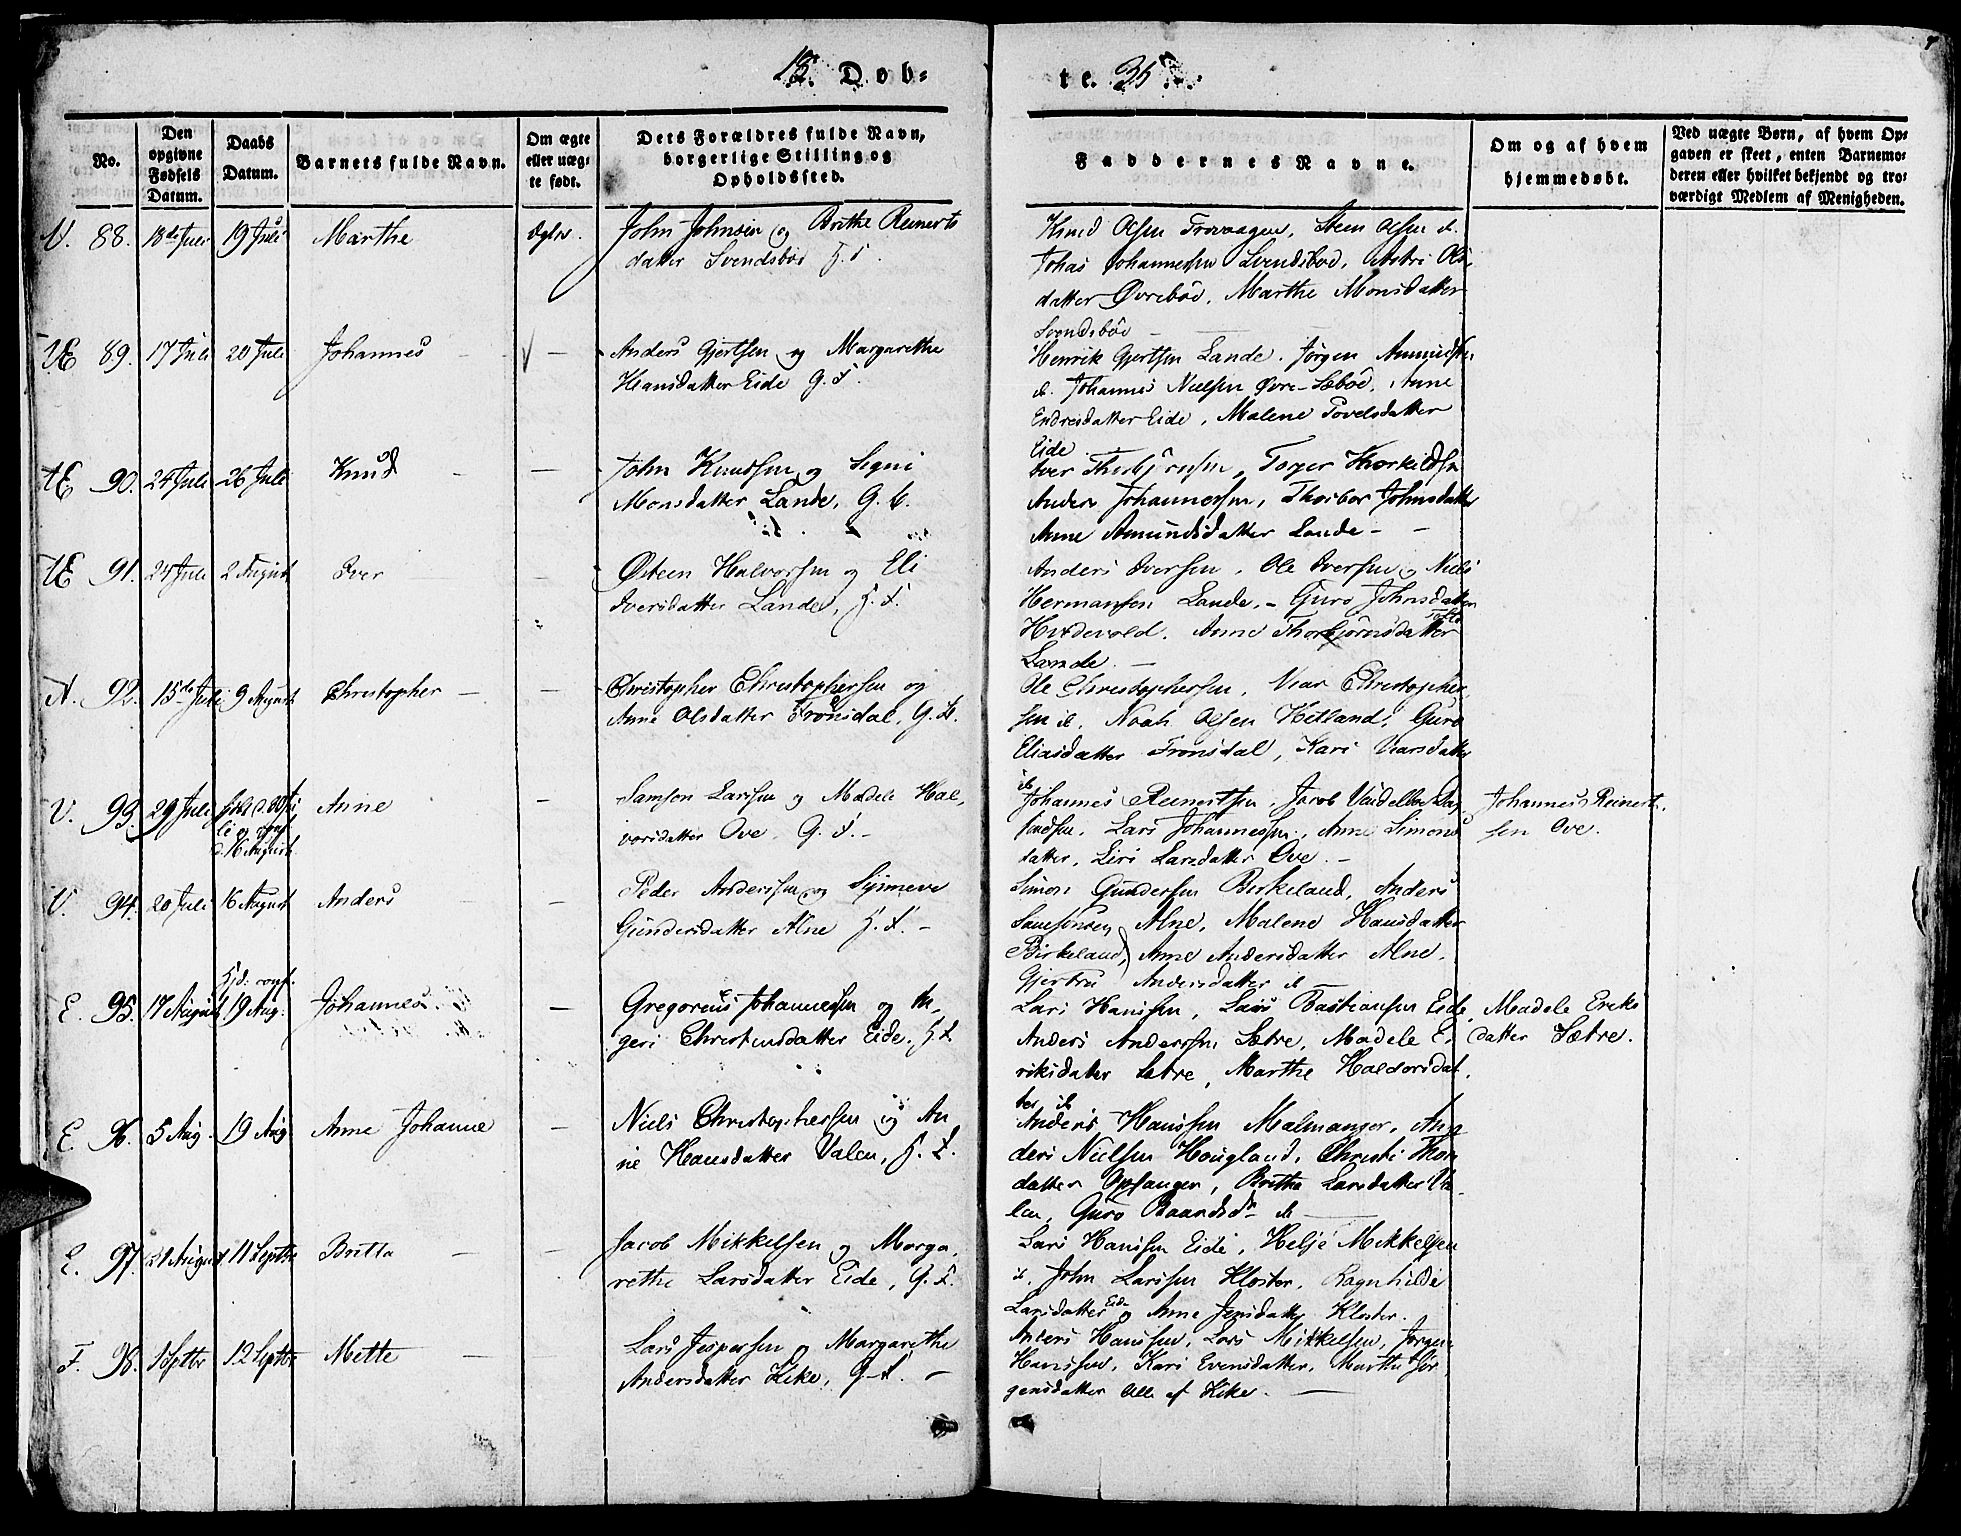 18. Dob-
te. 35
No.
Den opgivne Fødsels Datum.
Daabs Datum.
Barnets fulde Navn.
Om ægte eller uæg-te født.
Dets Forældres fulde Navn, borgerlige Stilling og Opholdssted.
Faddernes Navne.
Om og af hvem hjemmedøbt.
Ved uægte Børn, af hvem Op-gaven er skeet, enten Barnemo-deren eller hvilket bekjendt og tro-værdigt Medlem af Menigheden.
V. 88. 18de Juli 19 Juli Marthe
John Johnsen og Brithe Reinerts
datter Svendsböe
Knud Olsen Trovaagen, Steen Olsen
Johannessen Svendsböe,
datter Övreböe, Marthe Monsdatter
Svendsböe
89. 17 Juli 20 Juli Johannes
Anders Gjertsen og Margarethe
Hansdatter Eide G. F.
Henrik Gjertsen Lande. Jörgen
Johannes Nielsen Övre-Seböe, Anne
Endresdatter Eide, Malene Povelsdatter
Eide
90. 24 Juli 26 Juli Knud
John Knudsen og Segni
Monsdatter Lande,
Iver Thorbjörnsen, Torger Thorkildsen
Anders Johannessen, Thorbor Johnsdatter
Anne Amundsdatter Lande -
91. 24 Juli 2 August Iver
Östeen Halvorsen og Eli
Iversdatter Lande,
Anders Iversen, Ole Iversen og Niels
Hermansen Lande, - Guro Johnsdatter
Hvidevold. Anne Thorbjörnsdatter
Lande
92. 15de Juli 9 August Christopher
Christopher Christophersen og
Anne Olsdatter Frönsdal,
Ole Christophersen, Christopher
sen Noah Olsen Hetland, Guro
Eliasdatter Fronsdal, Kari
V. 93. 29 Juli Anne
d. 16 August
Samson Larssen og Madele Hal,
vorsdatter Ove. G. F. -
Johannes Reinertsen, Jacob
Lars Johannessen, Anne Simons
datter, Siri Larsdatter Ove. -
Johannes Reinert
sen Ove.
V. 94. 20 Juli 16 August Anders
Peder Anderssen og Synneve
Gundersdatter Alne
Simon Gundersen Birkeland, Anders
Alne, Malene Hansdatter
Birkeland, Anne Andersdatter Alne,
Gjertru Andersdatter
E. 95. 17 August 19 Aug: Johannes
Gregorius Johannessen og In,
geri Christensdatter Eide,
Lars Hanssen, Lars Bastiansen Eide,
Anders Anderssen Sætre, Madele E,
riksdatter Sætre, Marthe Haldorsdat
ter
Madele Eriks
datter Sætre.
E. 96. 5 Aug. 19 Aug Anne Johanne
Niels Christophersen og An
ne Hansdatter Valen,
Anders Hanssen Malmanger, An
ders Nielsen Hougland, Christi
datter Opsanger, Britha Larsdatter Va
len, Guro
E. 97. 21 August 11 Septbr Britta
Jacob Mikkelsen og Marga,
rethe Larsdatter Eide, G. F.
Lars Hanssen Eide, Helje Mikkelsen
John Larssen Kloster, Ragnhilde
Larsdatter Eide og Anne Jensdatter Kloster.
F. 98. 1 Sptbr 12 Septbr Mette
Lars Jespersen og Margarethe
Andersdatter Kike,
Anders Hanssen, Lars Mikkelsen, Jörgen
Hanssen, Kari Evensdatter, Marthe Jör,
gensdatter Alle af Kike.